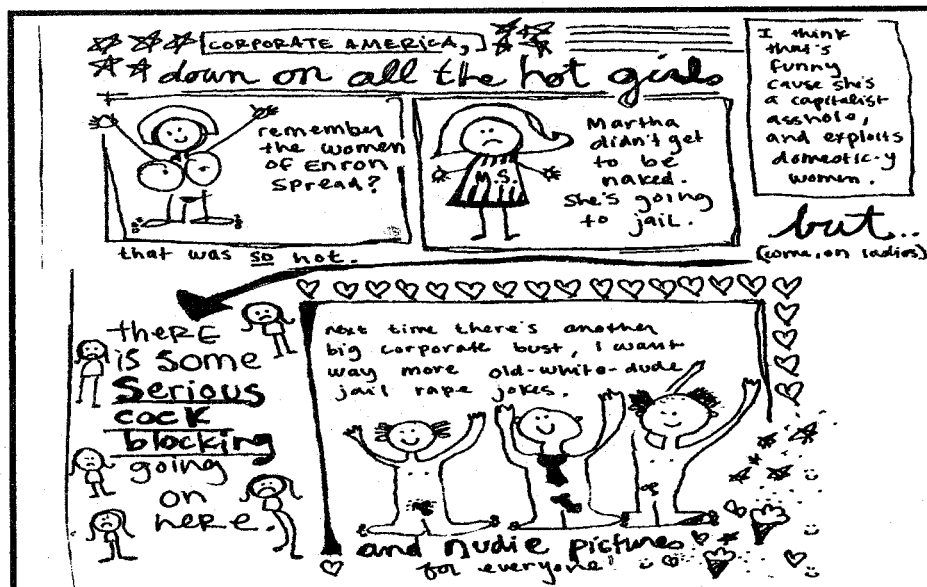 CORPORATE AMERICA,
down on all the hot girls
remember
the women
of Enron
spread?
that was so hot.
M.S.
Martha
didn't get
to be
naked.
she's going
to jail.
I think
that's
funny
cause she's
a capitalist
asshole,
and exploits
domestic-y
women.
but...
(come, on ladies)
there
is some
serious
cock
blocking
going
on
here.
next time there's another
big corporate bust, i want
way more old-white-dude
jail rape jokes.
and nudie pictures
for everyone!